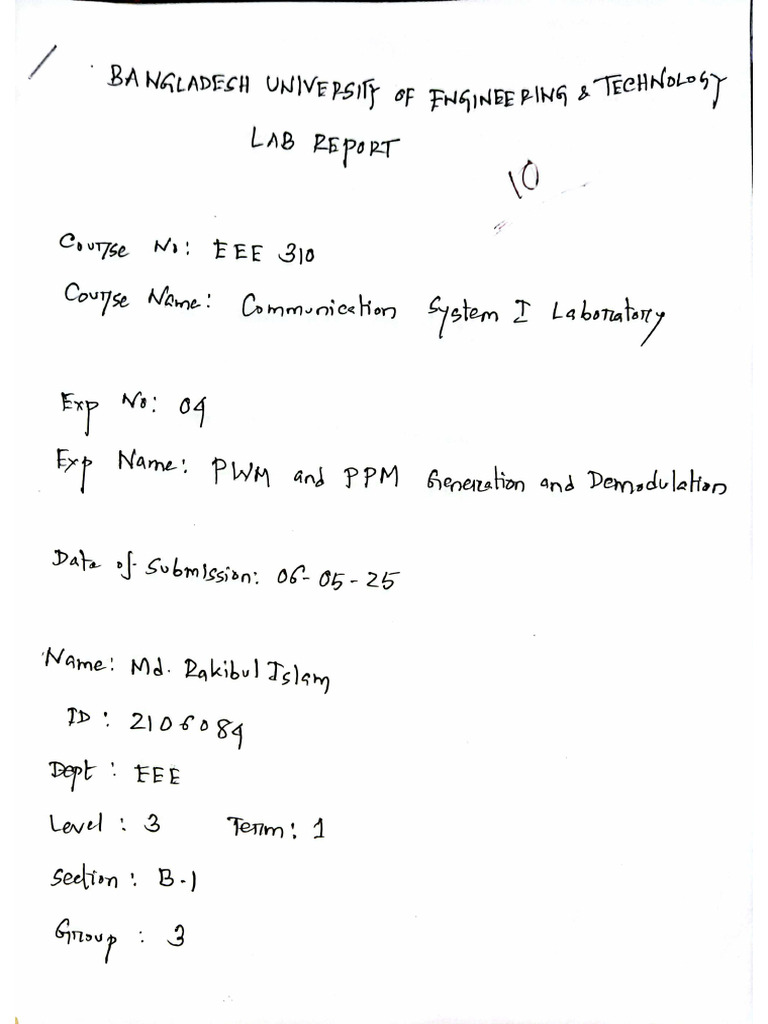 BANGLADESH UNIVERSITY OF ENGINEERING & TECHNOLOGY
LAB REPORT
10
Course No: EEE 310
Course Name: Communication System I Laboratory
Exp No: 04
Exp Name: PWM and PPM Generation and Demodulation
Date of Submission: 06-05-25
Name: Md. Rakibul Islam
ID: 2106084
Dept: EEE
Level: 3 Term: 1
Section: B-1
Group: 3